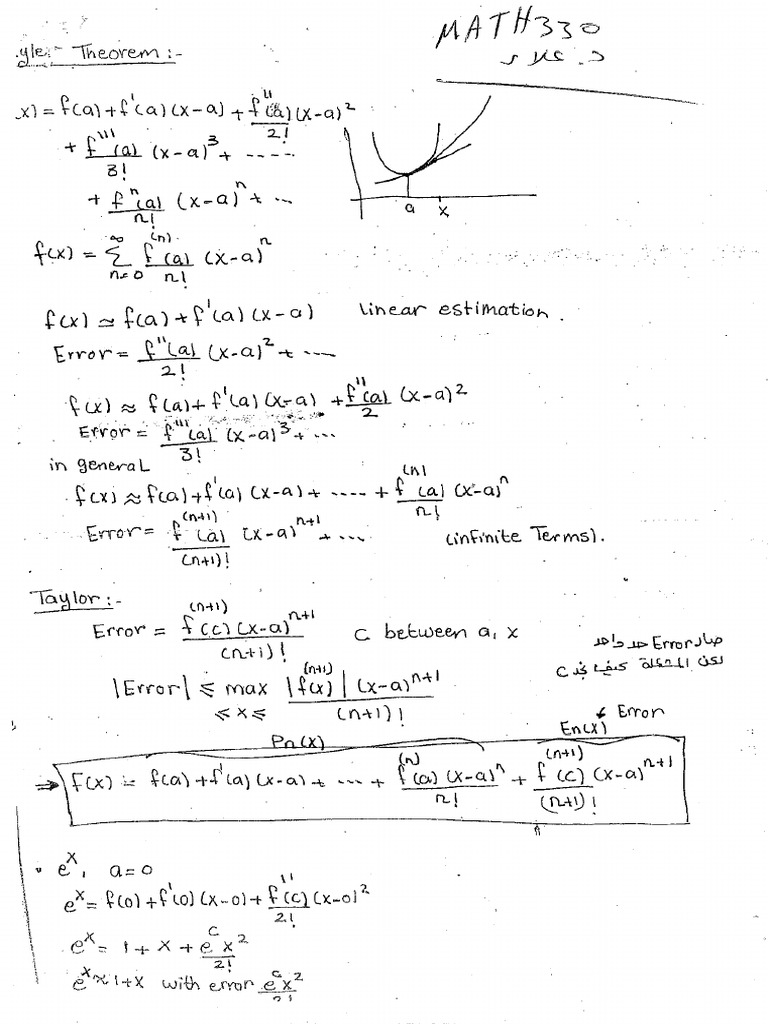 MATH330
د. علاء
yle:- Theorem:-
x) = f(a) + f'(a) (x-a) + f''(a)/2! (x-a)²
+ f'''(a)/3! (x-a)³ + -----
+ fⁿ(a)/n! (x-a)ⁿ + ...
a x
f(x) = ∑_{n=0}^{∞} f^{(n)}(a)/n! (x-a)ⁿ
f(x) ≃ f(a) + f'(a) (x-a) linear estimation.
Error = f''(a)/2! (x-a)² + ----
f(x) ≈ f(a) + f'(a) (x-a) + f''(a)/2 (x-a)²
Error = f'''(a)/3! (x-a)³ + ...
in general
f(x) ≈ f(a) + f'(a) (x-a) + ---- + f^{(n)}(a)/n! (x-a)ⁿ
Error = f^{(n+1)}(a)/(n+1)! (x-a)^{n+1} + ... (infinite Terms).
Taylor:-
Error = f^{(n+1)}(c) (x-a)^{n+1}/(n+1)! C between a, x
صار Error حد واحد
لكن المشكلة كيف نجد C
|Error| ≤ max |f^{(n+1)}(x)| (x-a)^{n+1}/(n+1)!
≤ x ≤
Pn(x) En(x) ↙ Error
⇒ F(x) = f(a) + f'(a) (x-a) + --- + f^{(n)}(a) (x-a)ⁿ/n! + f^{(n+1)}(c)/(n+1)! (x-a)^{n+1}
• eˣ, a=0
eˣ = f(0) + f'(0) (x-0) + f''(c)/2! (x-0)²
eˣ = 1 + x + e^c x²/2!
eˣ ≈ 1+x with error e^c x²/2!